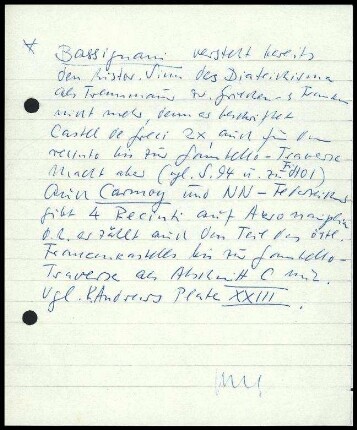 * Bassignani versteht bereits
den histor. Sinn des Diateichisma
als Trennmauer zw. Griechen- u. Franken
nicht mehr, denn er beschriftet
Castel de Greci 2x auch für den
recinto bis zur Gambello-Traverse
Macht aber (vgl. S. 94 u. zu F 101)
Auch Camoy und NN-Federzeichng
gibt 4 Recinti auf Akronauplia
d.h. er zählt auch den Teil des östl.
Frankenkastells bis zur Gambello-
Traverse als Abschnitt C mit.
Vgl. K. Andrews Plate XXIII.